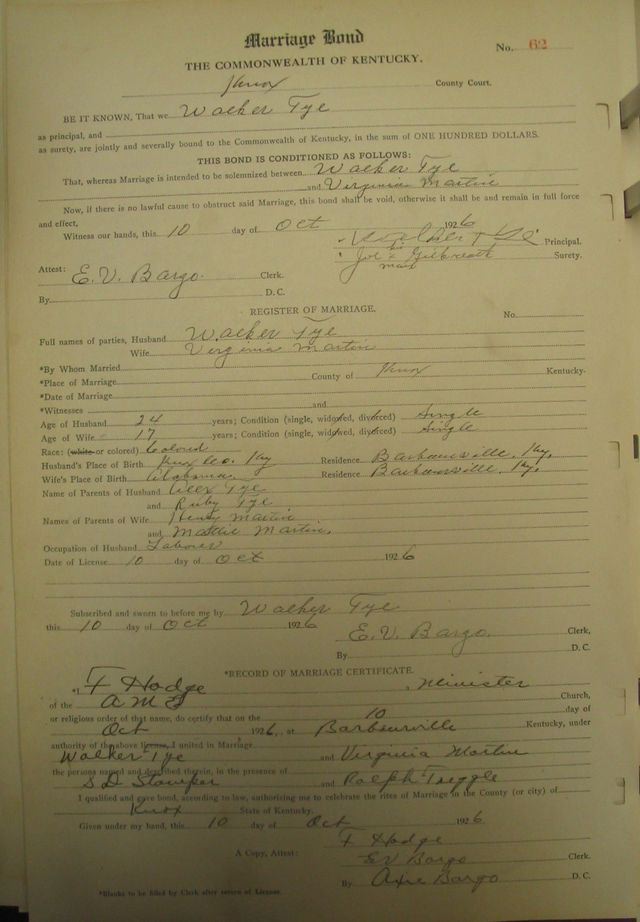 Marriage Bond
No. 62
THE COMMONWEALTH OF KENTUCKY.
Knox County Court.
BE IT KNOWN, That we Walker Tye
as principal, and
as surety, are jointly and severally bound to the Commonwealth of Kentucky, in the sum of ONE HUNDRED DOLLARS.
THIS BOND IS CONDITIONED AS FOLLOWS:
That, whereas Marriage is intended to be solemnized between Walker Tye
and Virginia Martin
Now, if there is no lawful cause to obstruct said Marriage, this bond shall be void, otherwise it shall be and remain in full force
and effect,
Witness our hands, this 10 day of Oct 1926
Walker Tye Principal.
his
Joe x Gilbreath Surety.
mark
Attest: E. V. Bargo. Clerk.
By D. C.
REGISTER OF MARRIAGE.
No.
Full names of parties, Husband Walker Tye
Wife Virginia Martin
*By Whom Married
*Place of Marriage County of Knox Kentucky.
*Date of Marriage
*Witnesses and
Age of Husband 24 years; Condition (single, widowed, divorced) Single
Age of Wife 17 years; Condition (single, widowed, divorced) Single
Race: (white or colored) Colored
Husband's Place of Birth Knox Co. Ky Residence Barbourville, Ky.
Wife's Place of Birth Alabama Residence Barbourville, Ky.
Name of Parents of Husband Alex Tye
and Ruby Tye
Names of Parents of Wife Henry Martin
and Mattie Martin.
Occupation of Husband Laborer
Date of License 10 day of Oct 1926
Subscribed and sworn to before me by Walker Tye
this 10 day of Oct 1926
E. V. Bargo. Clerk,
By D. C.
*RECORD OF MARRIAGE CERTIFICATE.
*I F Hodge, Minister
of the A M E Church,
or religious order of that name, do certify that on the 10 day of
Oct 1926, at Barbourville Kentucky, under
authority of the above license, I united in Marriage
Walker Tye and Virginia Martin
the persons named and described therein, in the presence of
S D Stamper and Ralph
I qualified and gave bond, according to law, authorizing me to celebrate the rites of Marriage in the County (or city) of
Knox State of Kentucky.
Given under my hand, this 10 day of Oct 1926
F Hodge
A Copy, Attest: EV Bargo Clerk.
By Bargo D. C.
*Blanks to be filled by Clerk after return of License.